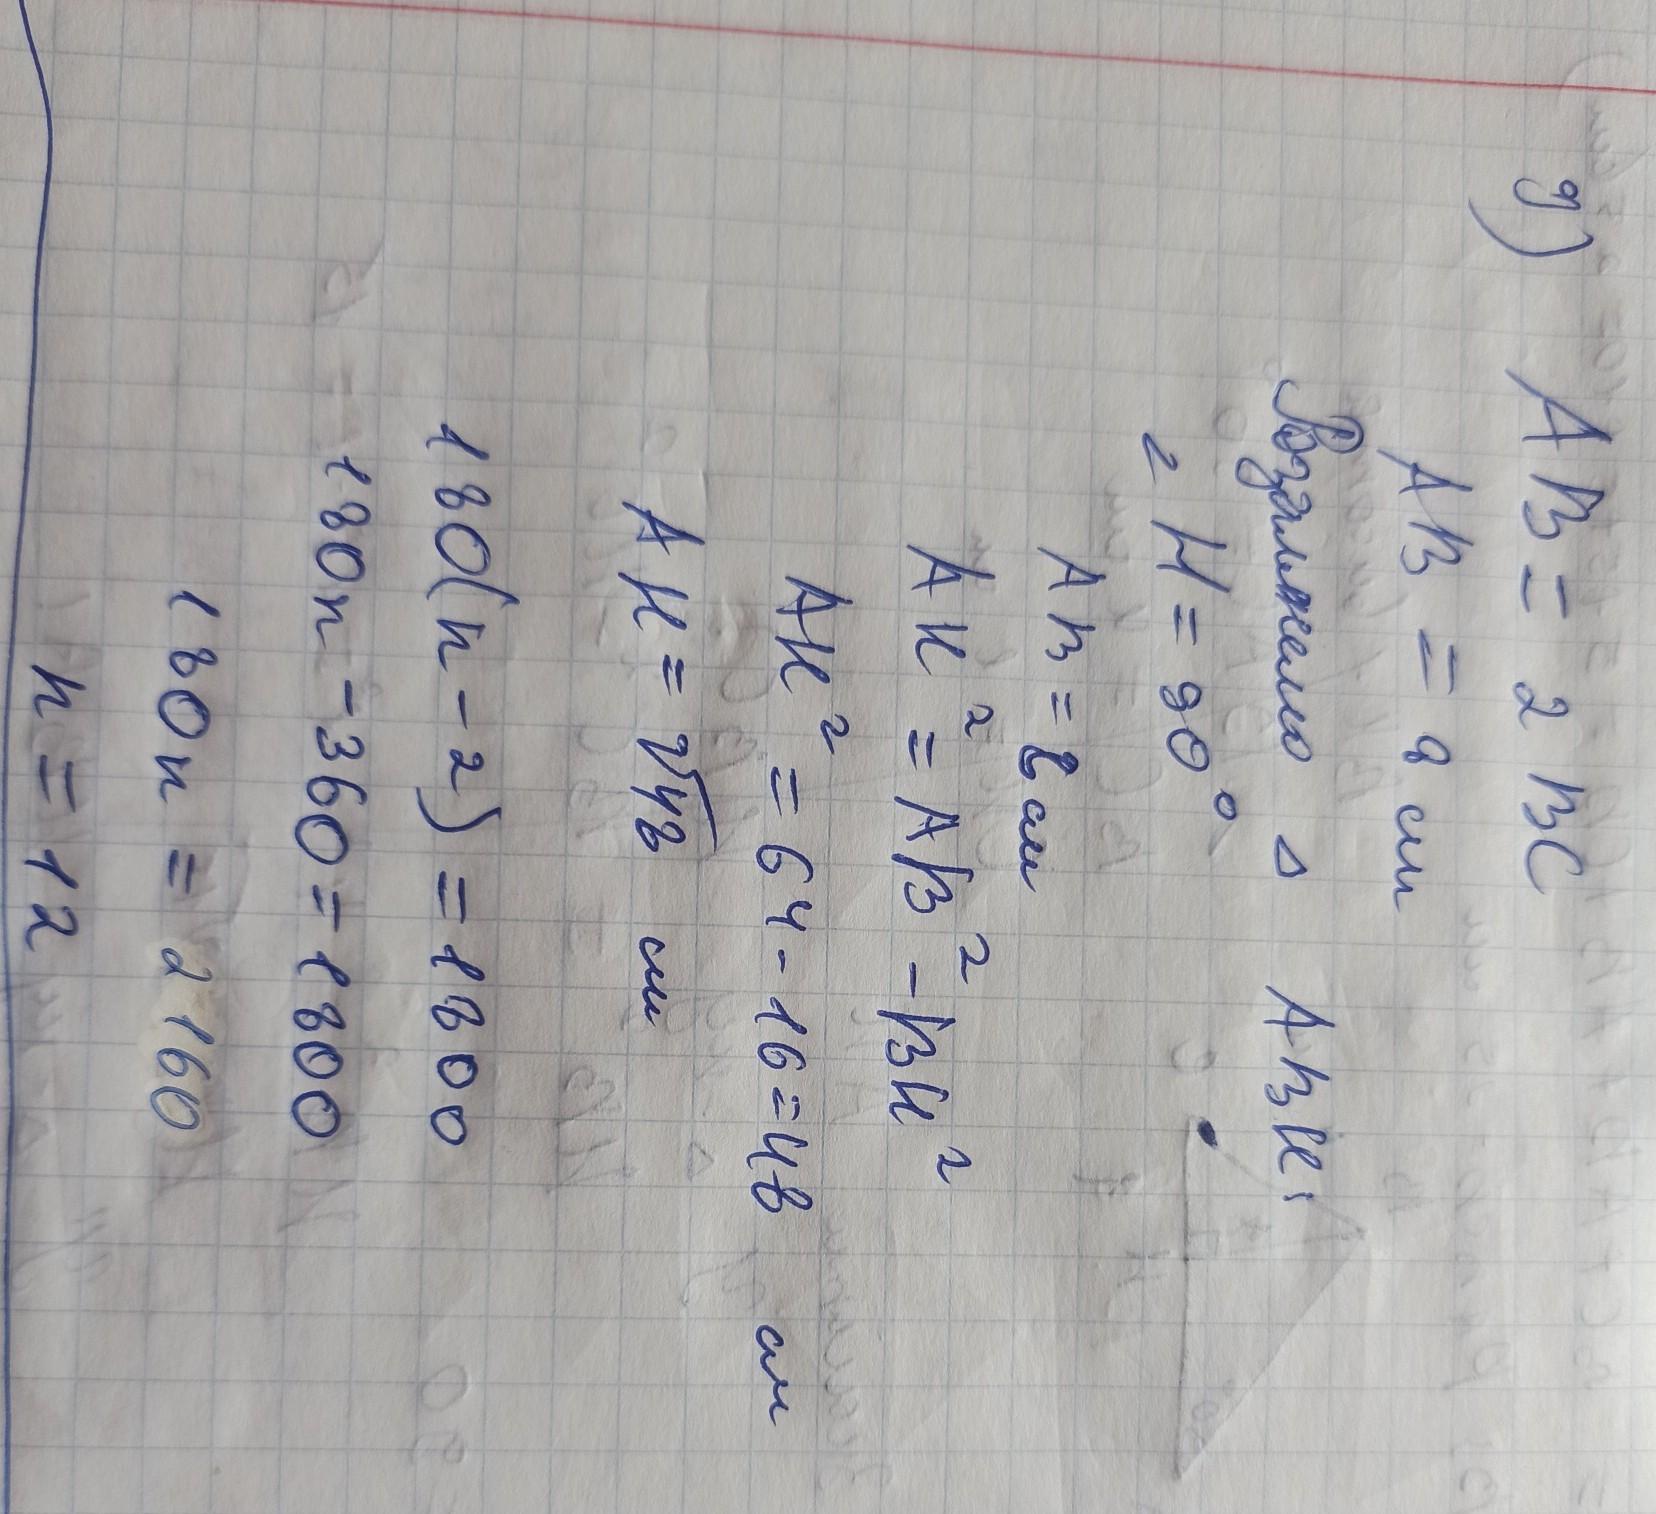 9) AB = 2 BC
AB = 8 см
Розглянемо △ ABH:
∠H = 90°
AB = 8 см
AH² = AB² - BH²
AH² = 64 - 16 = 48 см
AH = √48 см
180(n - 2) = 1800
180n - 360 = 1800
180n = 2160
n = 12